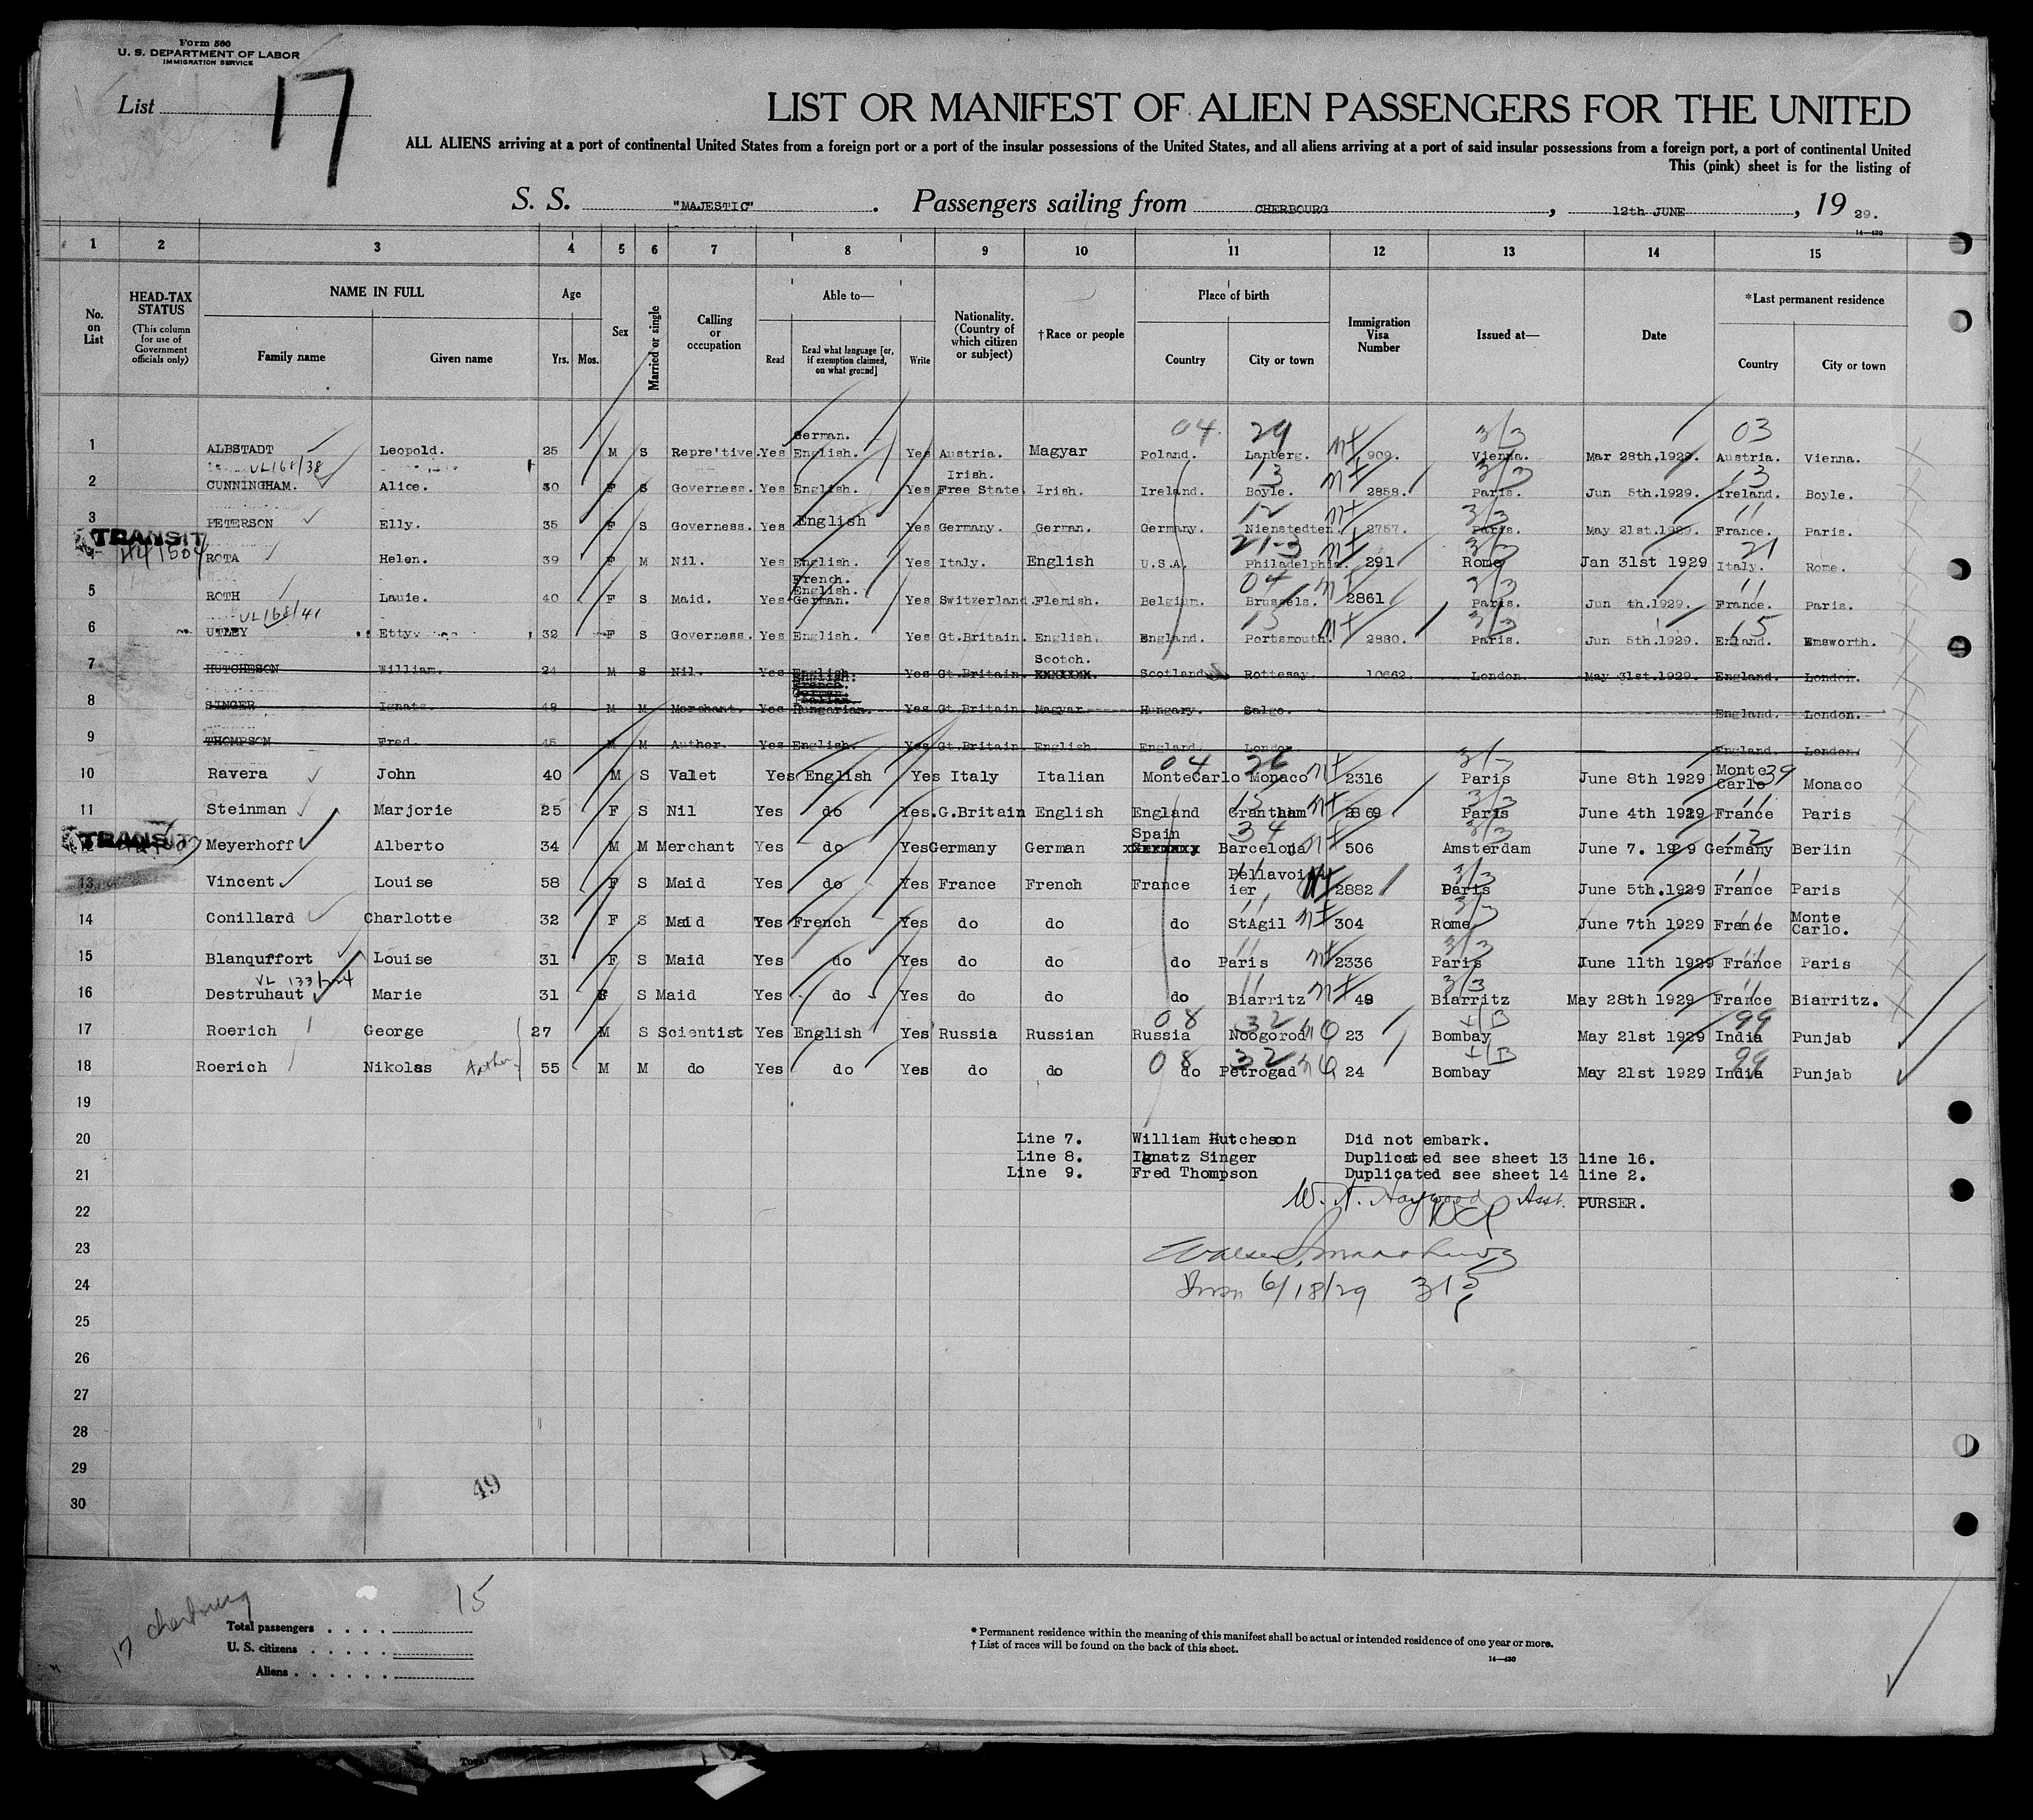 Form 500
U. S. DEPARTMENT OF LABOR
IMMIGRATION SERVICE
List 17
LIST OR MANIFEST OF ALIEN PASSENGERS FOR THE UNITED
ALL ALIENS arriving at a port of continental United States from a foreign port or a port of the insular possessions of the United States, and all aliens arriving at a port of said insular possessions from a foreign port, a port of continental United
This (pink) sheet is for the listing of
S. S. "MAJESTIC". Passengers sailing from CHERBOURG, 12th JUNE, 19 29.
14—430
1 2 3 4 5 6 7 8 9 10 11 12 13 14 15
No. on List
HEAD-TAX STATUS (This column for use of Government officials only)
NAME IN FULL Family name Given name
Age Yrs. Mos.
Sex
Married or single
Calling or occupation
Able to— Read Read what language [or, if exemption claimed, on what ground] Write
Nationality. (Country of which citizen or subject)
†Race or people
Place of birth Country City or town
Immigration Visa Number
Issued at—
Date
*Last permanent residence Country City or town
04 29 3/3 03
1 ALBSTADT Leopold. 25 M S Repre'tive. Yes German. English. Yes Austria. Magyar Poland. Lanberg. 909. Vienna. Mar 28th.1929. Austria. Vienna.
VL168/38 13 3/3 13
2 CUNNINGHAM. Alice. 30 F S Governess. Yes English. Yes Irish. Free State. Irish. Ireland. Boyle. 2858. Paris. Jun 5th.1929. Ireland. Boyle.
12 3/3 11
3 PETERSON Elly. 35 F S Governess. Yes English Yes Germany. German. Germany. Nienstedten. 2757. Paris. May 21st.1929. France. Paris.
TRANSIT 21-3 3/3 21
ROTA Helen. 39 F M Nil. Yes English. Yes Italy. English U.S.A. Philadelphia. 291 Rome Jan 31st 1929 Italy. Rome.
04 3/3 11
5 ROTH Lauie. 40 F S Maid. Yes French. English. German. Yes Switzerland. Flemish. Belgium. Brussels. 2861 Paris. Jun th.1929. France. Paris.
VL168/41 15 3/3 15
6 UTLEY Etty. 32 F S Governess. Yes English. Yes Gt.Britain. English. England. Portsmouth. 2880. Paris. Jun 5th.1929. England. Emsworth.
7 HUTCHESON William. 24 M S Nil. Yes English. Yes Gt.Britain. Scotch. Scotland Rottesay. 10662. London. May 31st.1929. England. London.
8 SINGER Ignatz. 48 M M Merchant. Yes English. French. German. Italian. Hungarian. Yes Gt.Britain. Magyar. Hungary. Salgo. England. London.
9 THOMPSON Fred. 45 M M Author. Yes English. Yes Gt.Britain. English. England. London England. London.
04 26 39
10 Ravera John 40 M S Valet Yes English Yes Italy Italian MonteCarlo Monaco 2316 Paris June 8th 1929 Monte Carlo Monaco
15 3/3 11
11 Steinman Marjorie 25 F S Nil Yes do Yes. G.Britain English England Grantham 2869 Paris June 4th 1929 France Paris
TRANSIT 34 3/3 12
Meyerhoff Alberto 34 M M Merchant Yes do Yes Germany German Spain Barcelona 506 Amsterdam June 7. 1929 Germany Berlin
11 3/3 11
13 Vincent Louise 58 F S Maid Yes do Yes France French France Pellavoisier 2882 Paris June 5th.1929 France Paris
11 11
14 Conillard Charlotte 32 F S Maid Yes French Yes do do do StAgil 304 Rome June 7th 1929 France Monte Carlo.
11 3/3 11
15 Blanquffort Louise 31 F S Maid Yes do Yes do do do Paris 2336 Paris June 11th 1929 France Paris
11 3/3 11
16 Destruhaut Marie 31 F S Maid Yes do Yes do do do Biarritz 48 Biarritz May 28th 1929 France Biarritz.
08 32 99
17 Roerich George 27 M S Scientist Yes English Yes Russia Russian Russia Noogorod 23 Bombay May 21st 1929 India Punjab
08 32 99
18 Roerich Nikolas Author 55 M M do Yes do Yes do do do Petrogad 24 Bombay May 21st 1929 India Punjab
19
20 Line 7. William Hutcheson Did not embark.
Line 8. Ignatz Singer Duplicated see sheet 13 line 16.
21 Line 9. Fred Thompson Duplicated see sheet 14 line 2.
W. A. Haywood Asst. PURSER.
22
23
24 6/18/29 315
25
26
27
28
29
30
49
17 Cherbourg
15
Total passengers
U. S. citizens
Aliens
* Permanent residence within the meaning of this manifest shall be actual or intended residence of one year or more.
† List of races will be found on the back of this sheet.
14—430